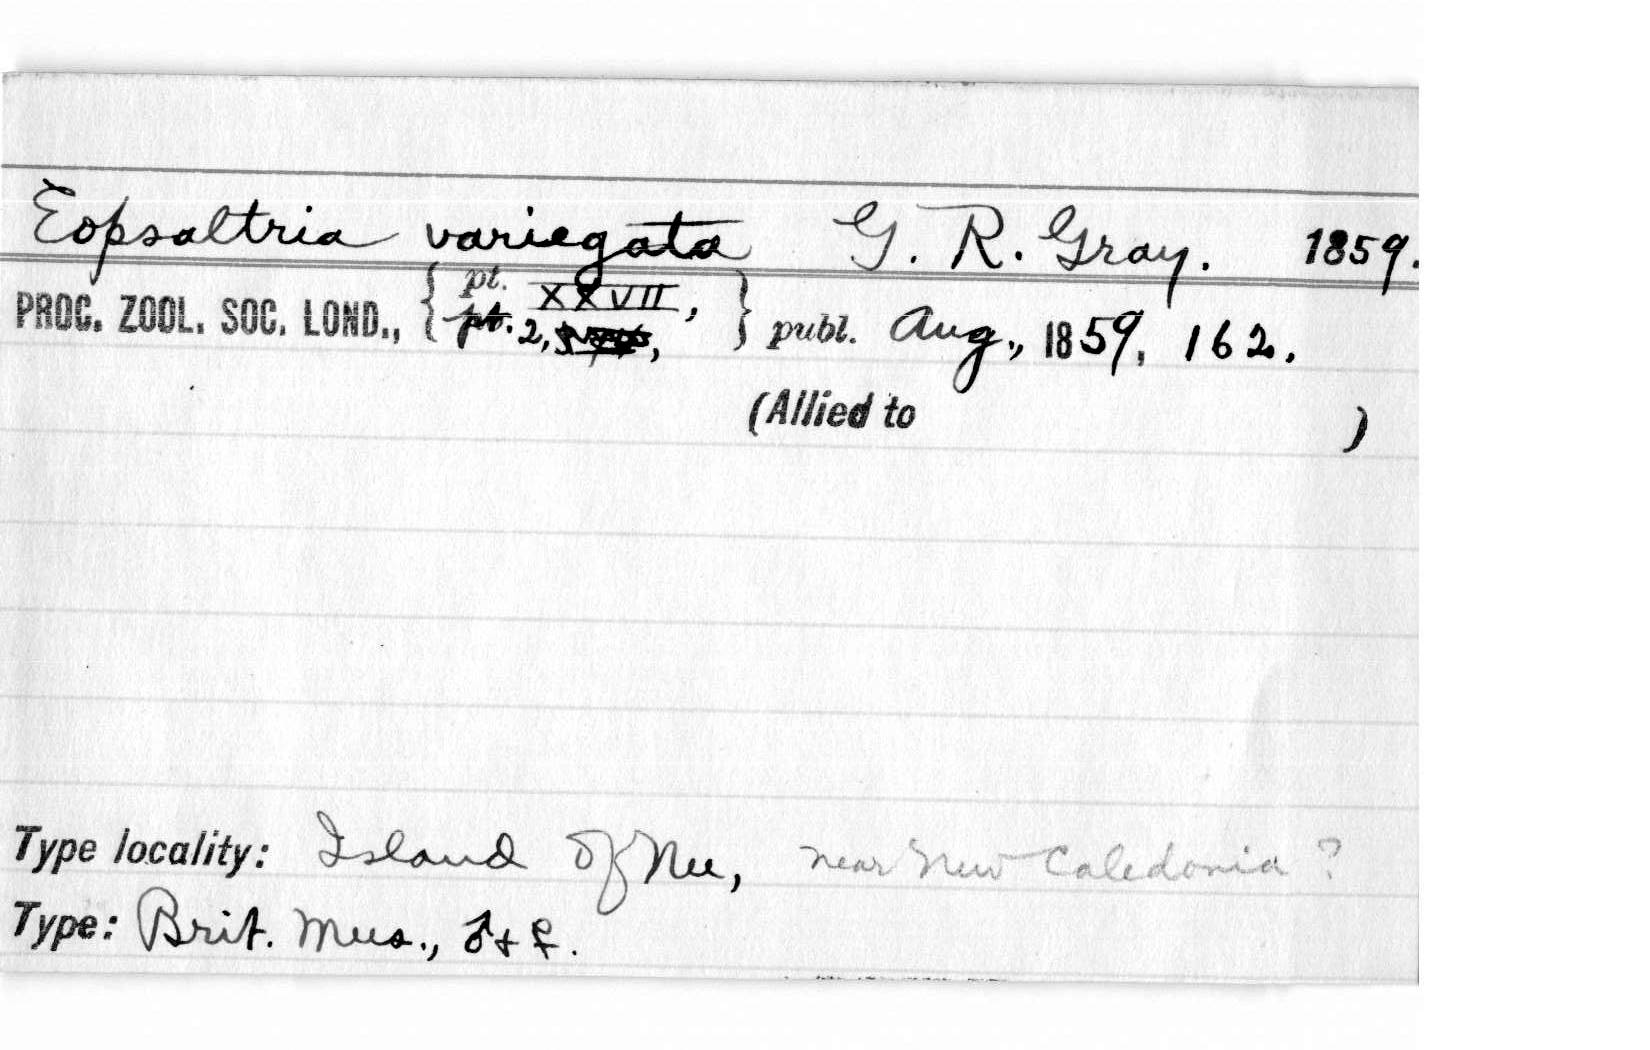 Eopsaltria variegata G. R. Gray. 1859.
PROC. ZOOL. SOC. LOND., { pt. XXVII, } publ. Aug., 1859, 162.
pt. 2,
(Allied to )
Type locality: Island of Nu, near New Caledonia ?
Type: Brit. Mus., ♂ + ♀.